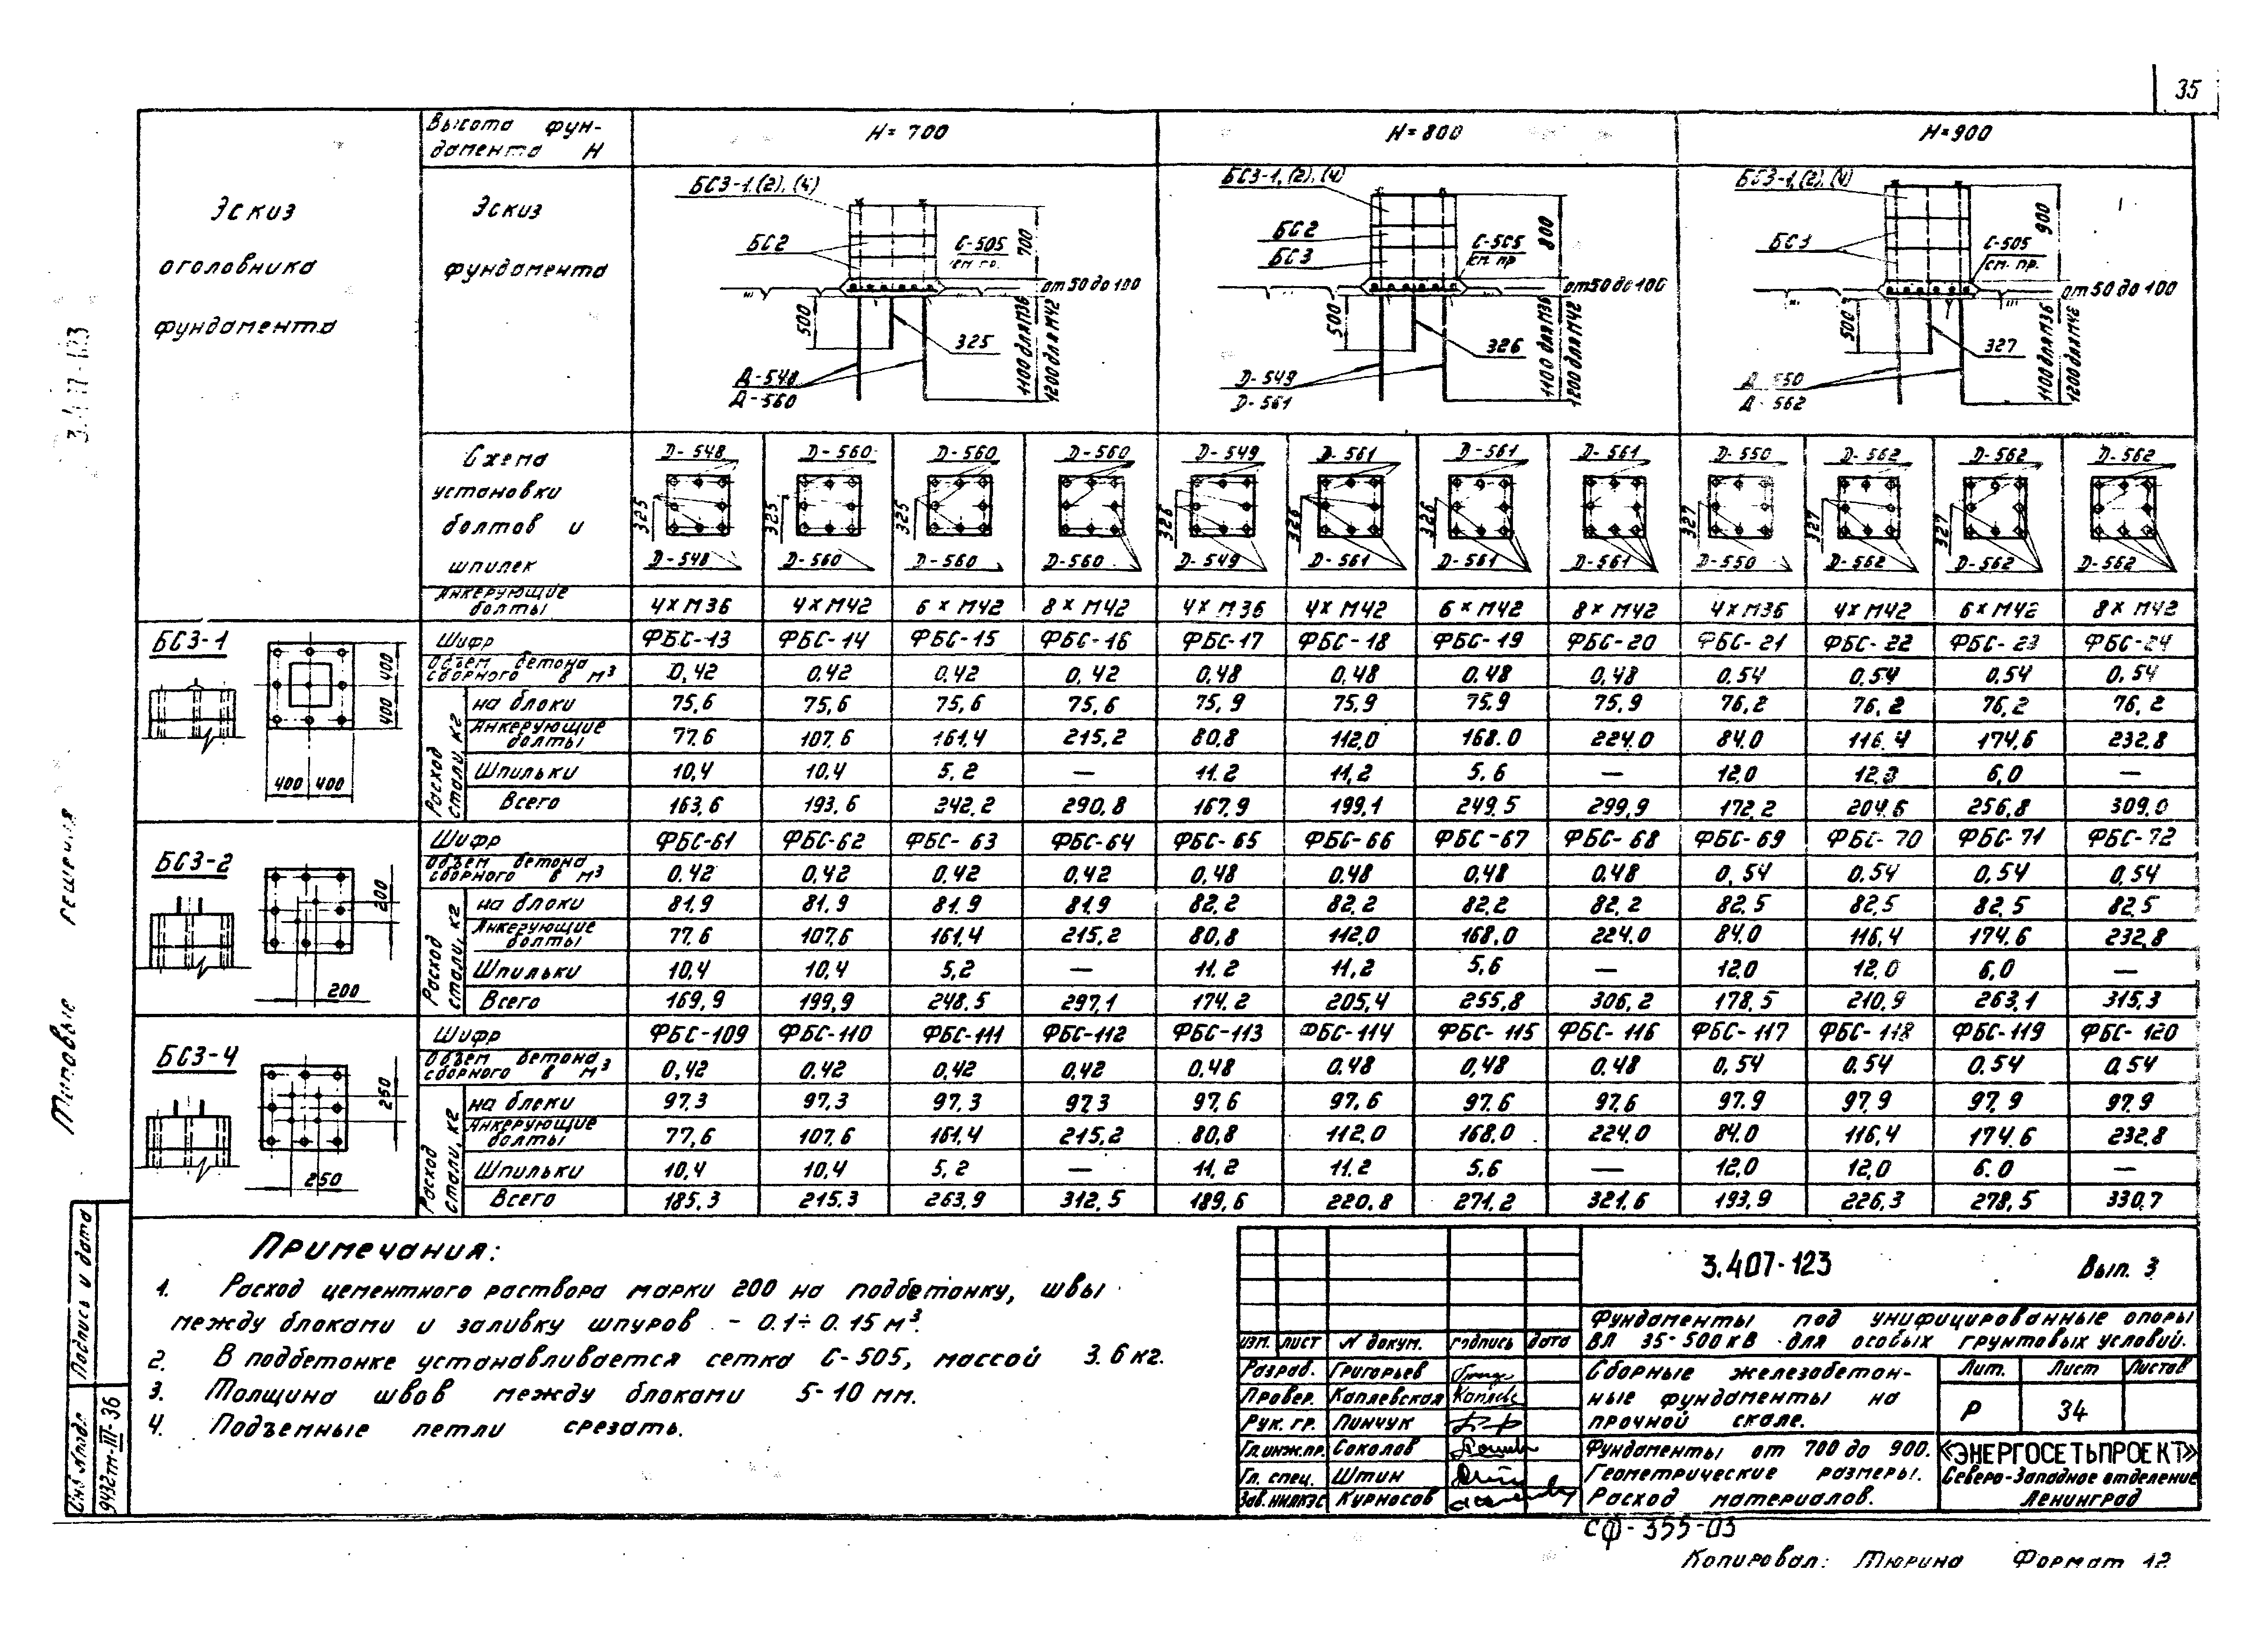 35
Высота фун-
дамента H
H= 700
H= 800
H= 900
Эскиз
оголовника
фундамента
Эскиз
фундамента
БС3-1,(2),(4)
БС2
С-505
см. пр.
700
от 50 до 100
500
325
Д-548
Д-560
1100 для М36
1200 для М42
БС3-1,(2),(4)
БС2
БС3
С-505
см. пр
800
от 50 до 100
500
326
Д-549
Д-561
1100 для М36
1200 для М42
БС3-1,(2),(4)
БС3
С-505
см. пр.
900
от 50 до 100
500
327
Д-550
Д-562
1100 для М36
1200 для М42
Схема
установки
болтов и
шпилек
Д-548 Д-560 Д-560 Д-560 Д-549 Д-561 Д-561 Д-561 Д-550 Д-562 Д-562 Д-562
325 325 325 326 326 326 327 327 327
Д-548 Д-560 Д-560 Д-560 Д-549 Д-561 Д-561 Д-561 Д-550 Д-562 Д-562 Д-562
Анкерующие
болты
4×М36 4×М42 6×М42 8×М42 4×М36 4×М42 6×М42 8×М42 4×М36 4×М42 6×М42 8×М42
БС3-1
400 400
400 400
Шифр ФБС-13 ФБС-14 ФБС-15 ФБС-16 ФБС-17 ФБС-18 ФБС-19 ФБС-20 ФБС-21 ФБС-22 ФБС-23 ФБС-24
Объем бетона
сборного в м³
0,42 0.42 0.42 0,42 0.48 0,48 0.48 0,48 0.54 0.54 0.54 0.54
Расход
стали, кг
на блоки 75,6 75,6 75,6 75,6 75,9 75,9 75.9 75,9 76,2 76,2 76,2 76,2
Анкерующие
болты
77.6 107.6 161.4 215,2 80,8 112,0 168.0 224.0 84.0 116.4 174,6 232.8
Шпильки 10,4 10,4 5,2 — 11.2 11,2 5,6 — 12.0 12.0 6,0 —
Всего 163,6 193,6 242,2 290,8 167,9 199,1 249,5 299,9 172,2 204,6 256,8 309.0
БС3-2
200
200
Шифр ФБС-61 ФБС-62 ФБС-63 ФБС-64 ФБС-65 ФБС-66 ФБС-67 ФБС-68 ФБС-69 ФБС-70 ФБС-71 ФБС-72
Объем бетона
сборного в м³
0.42 0,42 0.42 0,42 0,48 0.48 0,48 0.48 0,54 0.54 0,54 0,54
Расход
стали, кг
на блоки 81,9 81.9 81.9 81.9 82,2 82,2 82,2 82,2 82.5 82,5 82,5 82.5
Анкерующие
болты
77.6 107,6 161,4 215,2 80,8 112,0 168,0 224,0 84,0 116,4 174.6 232,8
Шпильки 10,4 10,4 5,2 — 11.2 11,2 5,6 — 12.0 12.0 6,0 —
Всего 169,9 199,9 248,5 297,1 174,2 205,4 255,8 306,2 178,5 210,9 263,1 315,3
БС3-4
250
250
Шифр ФБС-109 ФБС-110 ФБС-111 ФБС-112 ФБС-113 ФБС-114 ФБС-115 ФБС-116 ФБС-117 ФБС-118 ФБС-119 ФБС-120
Объем бетона
сборного в м³
0,42 0.42 0,42 0,42 0,48 0.48 0,48 0.48 0,54 0.54 0.54 0.54
Расход
стали, кг
на блоки 97.3 97,3 97,3 97.3 97,6 97,6 97.6 97.6 97.9 97.9 97.9 97.9
Анкерующие
болты
77,6 107,6 161.4 215,2 80,8 112.0 168.0 224,0 84.0 116,4 174.6 232.8
Шпильки 10,4 10,4 5,2 — 11,2 11.2 5.6 — 12.0 12,0 6.0 —
Всего 185,3 215,3 263,9 312,5 189,6 220,8 271,2 321,6 193,9 226,3 278,5 330,7
Примечания:
1. Расход цементного раствора марки 200 на подбетонку, швы
между блоками и заливку шпуров - 0.1÷0.15 м³.
2. В подбетонке устанавливается сетка С-505, массой 3.6 кг.
3. Толщина швов между блоками 5-10 мм.
4. Подъемные петли срезать.
3.407-123 Вып. 3
Фундаменты под унифицированные опоры
ВЛ 35-500 кВ для особых грунтовых условий.
изм. лист N докум. подпись дата
Разраб. Григорьев
Провер. Каплевская
Рук. гр. Пинчук
Гл.инж.пр. Соколов
Гл. спец. Штин
Зав.НИЛКЭС Курносов
Сборные железобетон-
ные фундаменты на
прочной скале.
Лит. Лист Листов
Р 34
Фундаменты от 700 до 900.
Геометрические размеры.
Расход материалов.
«ЭНЕРГОСЕТЬПРОЕКТ»
Северо-Западное отделение
Ленинград
СФ-355-03
Копировал: Тюрина Формат 12
3.407-123
Типовые решения
Подпись и дата
9432тм-III-36